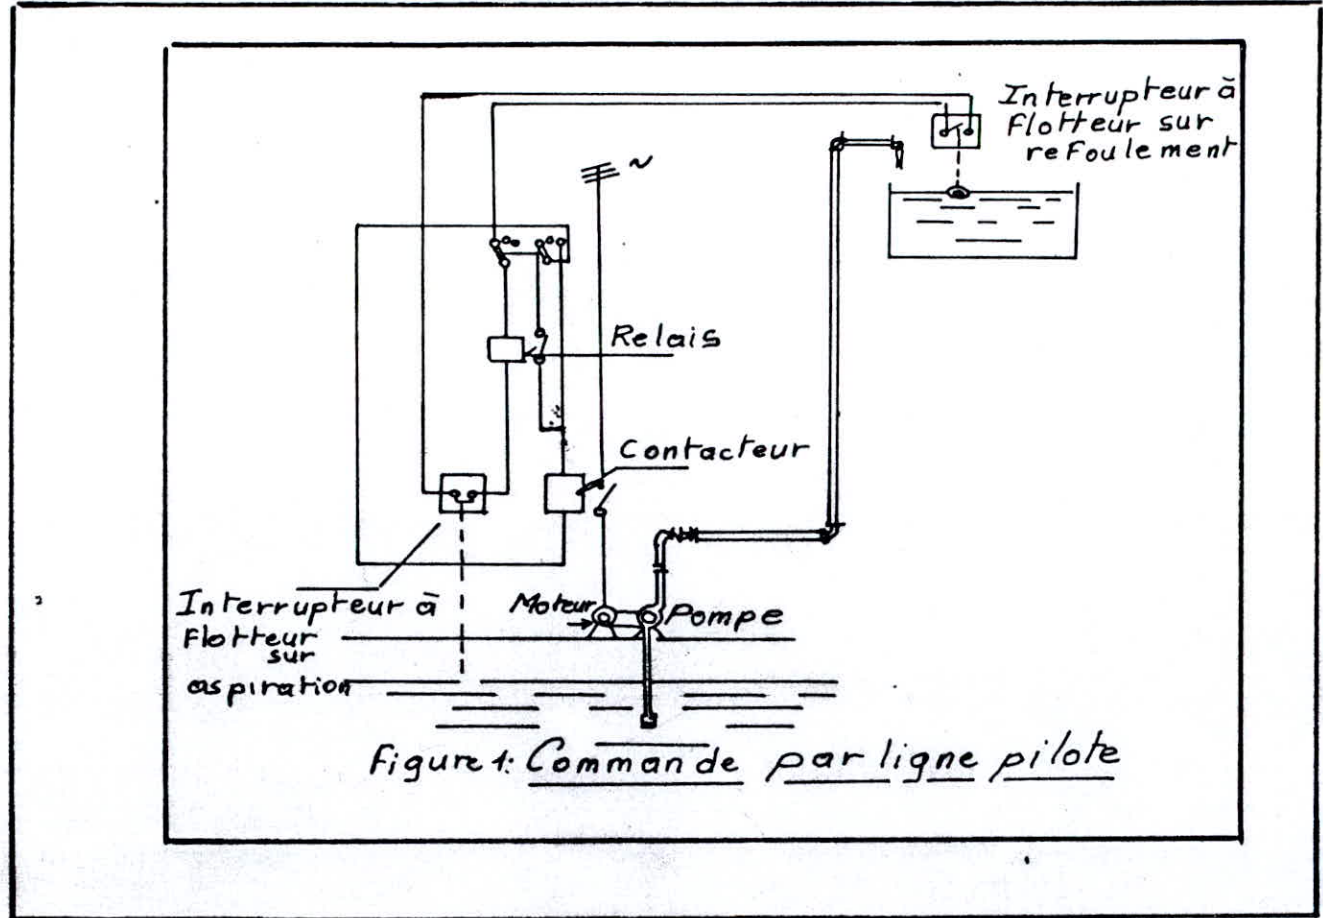 Interrupteur à
flotteur sur
refoulement
~
Relais
Contacteur
Interrupteur à
flotteur
sur
aspiration
Moteur
Pompe
Figure 1: Commande par ligne pilote